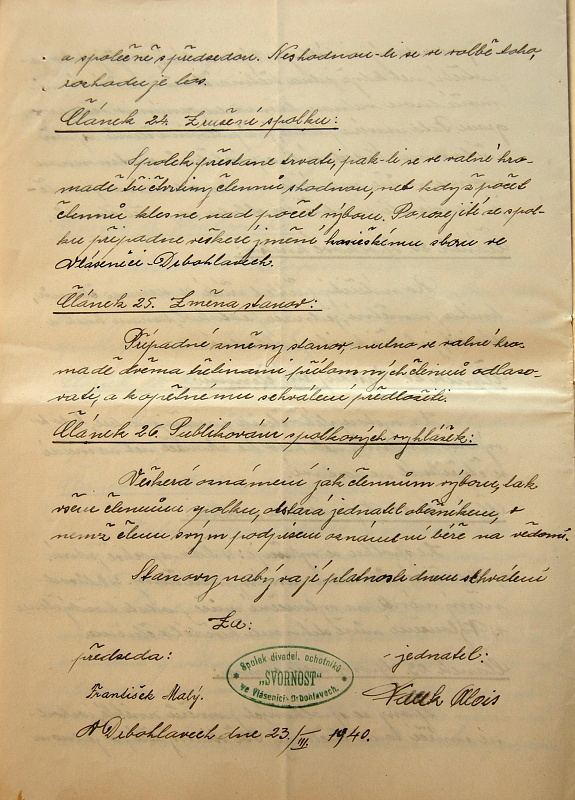 a společně s předsedou. Neshodnou-li se ve volbě toho,
rozhoduje los.
Článek 24. Zrušení spolku:
Spolek přestane trvati, pak-li se ve valné hro-
madě tři čtvrtiny členů shodnou, neb když počet
členů klesne nad počet výboru. Po rozejití se spol-
ku připadne veškeré jmění hasičskému sboru ve
Vlásenici-Drbohlavech.
Článek 25. Změna stanov:
Případné změny stanov, nutno se valné hro-
madě dvěma třetinami přítomných členů odlaso-
vati, a kopětnému schválení předložiti.
Článek 26. Publikování spolkových vyhlášek:
Veškerá oznámení jak členům výboru, tak
všem členům spolku, obstará jednatel oběžníkem, v
nemž člen svým podpisem oznámení béře na vědomí.
Stanovy nabývají platnosti dnem schválení
Za:
předseda:
jednatel:
Spolek divadel. ochotníků
„SVORNOST"
ve Vlásenici-Drbohlavech.
František Malý.
Alois
V Drbohlavech dne 23/III. 1940.